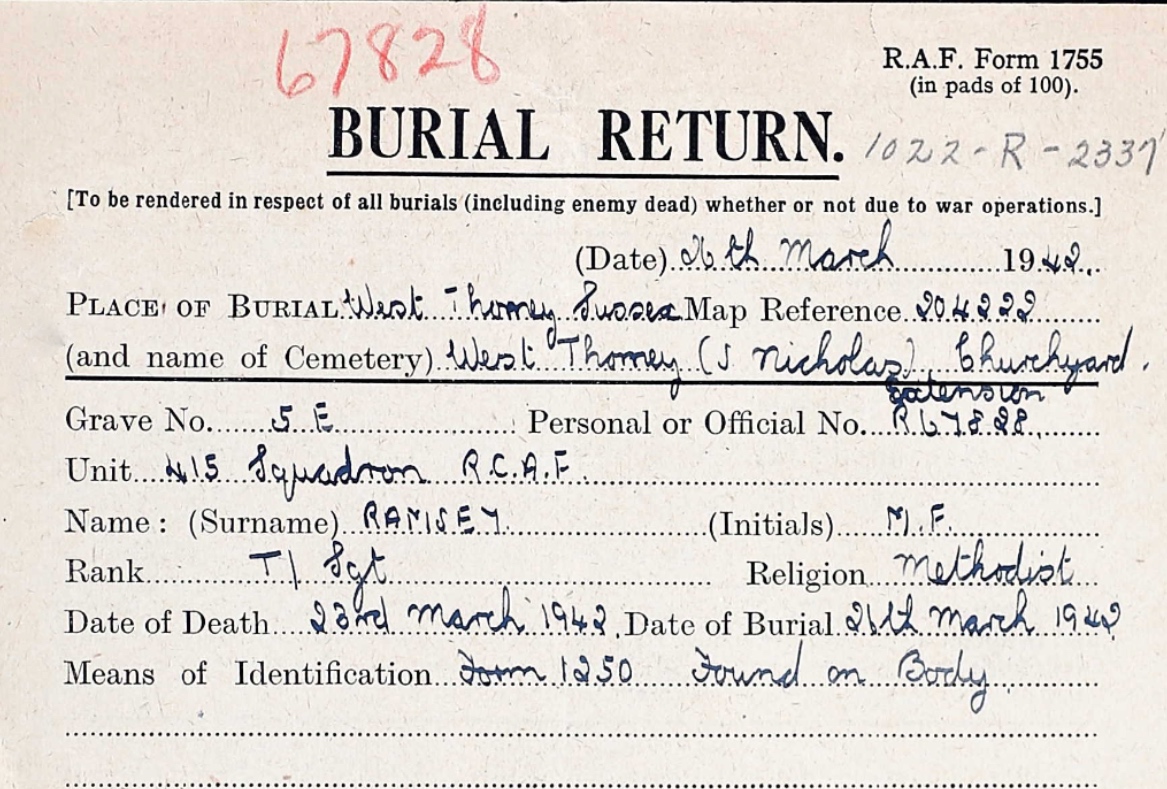 67828
R.A.F. Form 1755
(in pads of 100).
BURIAL RETURN. 1022-R-2337
[To be rendered in respect of all burials (including enemy dead) whether or not due to war operations.]
(Date) 26th March 1942.
PLACE OF BURIAL West Thorney Sussex Map Reference 204222
(and name of Cemetery) West Thorney (S Nicholas) Churchyard.
Extension
Grave No. 5 E Personal or Official No. R67828.
Unit 415 Squadron R.C.A.F.
Name: (Surname) RAMSEY. (Initials) M.F.
Rank T/ Sgt Religion Methodist
Date of Death 23rd March 1942. Date of Burial 26th March 1942
Means of Identification Form 1250 Found on Body